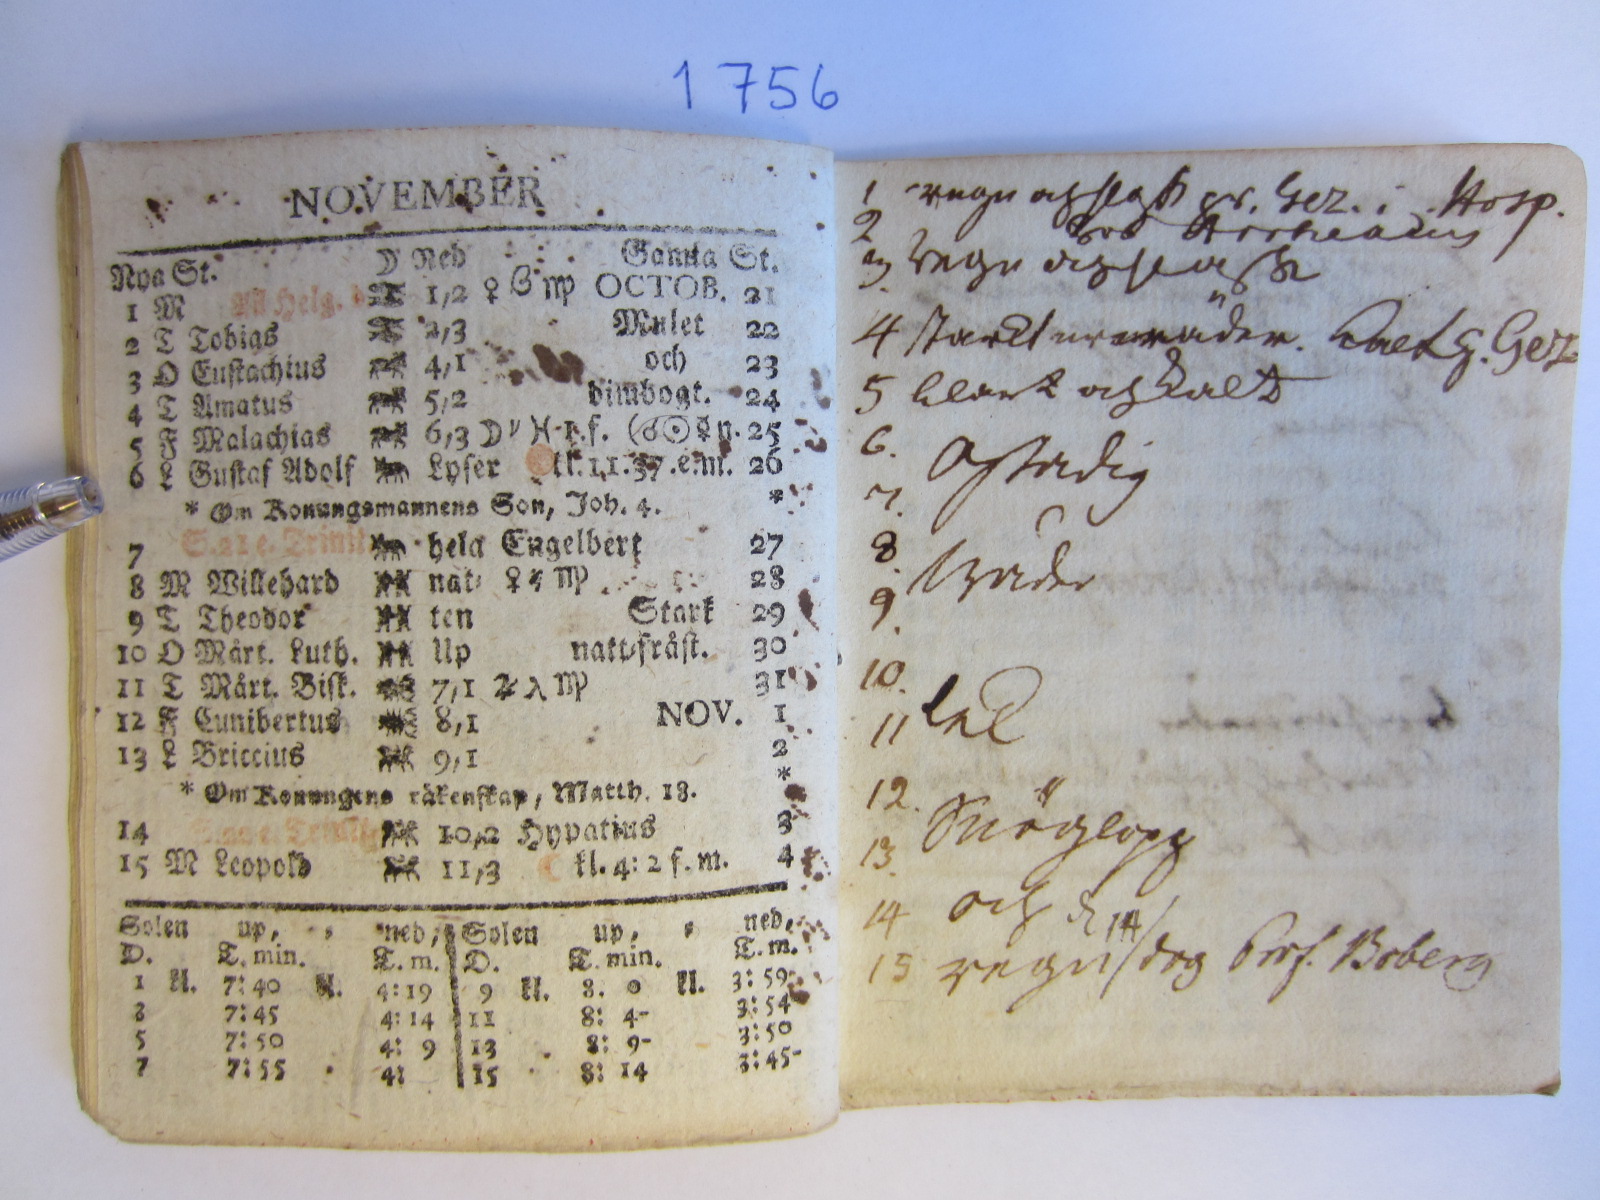 1756
NOVEMBER
Nya St. ☽ Ned Gamla St.
1 M All Helg. d 1,2 ♀ ☌ ♍ OCTOB. 21
2 T Tobias 2,3 Mulet 22
3 O Eustachius 4,1 och 23
4 T Amatus 5,2 dimbogt. 24
5 F Malachias 6,3 25
6 L Gustaf Adolf Lyser kl. 11. 37. e. m. 26
* Om Konungsmannens Son, Joh. 4. *
7 S. 21 e. Trinit. hela Engelbert 27
8 M Willehard nat⸗ ♀ ♍ 28
9 T Theodor ten Stark 29
10 O Mårt. Luth. Up natt⸗fråst. 30
11 T Mårt. Bisk. 7,1 ♃ ♍ 31
12 F Cunibertus 8,1 NOV. 1
13 L Briccius 9,1 2
* Om Konungens räkenskap, Matth. 18. *
14 10,2 Hypatius 3
15 M Leopold 11,3 ☾ kl. 4: 2 f. m. 4
Solen up, ned, Solen up, ned,
D. T. min. T. m. D. T. min. T. m.
1 kl. 7:40 kl. 4:19 9 kl. 8. 0 kl. 3:59
3 7:45 4:14 11 8: 4- 3:54
5 7:50 4: 9 13 8: 9- 3:50
7 7:55 4: 15 8: 14 3:45-
1 regn och slask Gez. i Hosp.
2
3 regn och slask
4 starkt urväder. Gez
5 klart och kalt
6. Ostadig
7.
8. wäder
9.
10.
11
12. Snöglopp
13.
14 och d 14
15 regn / dog Prof. Boberg